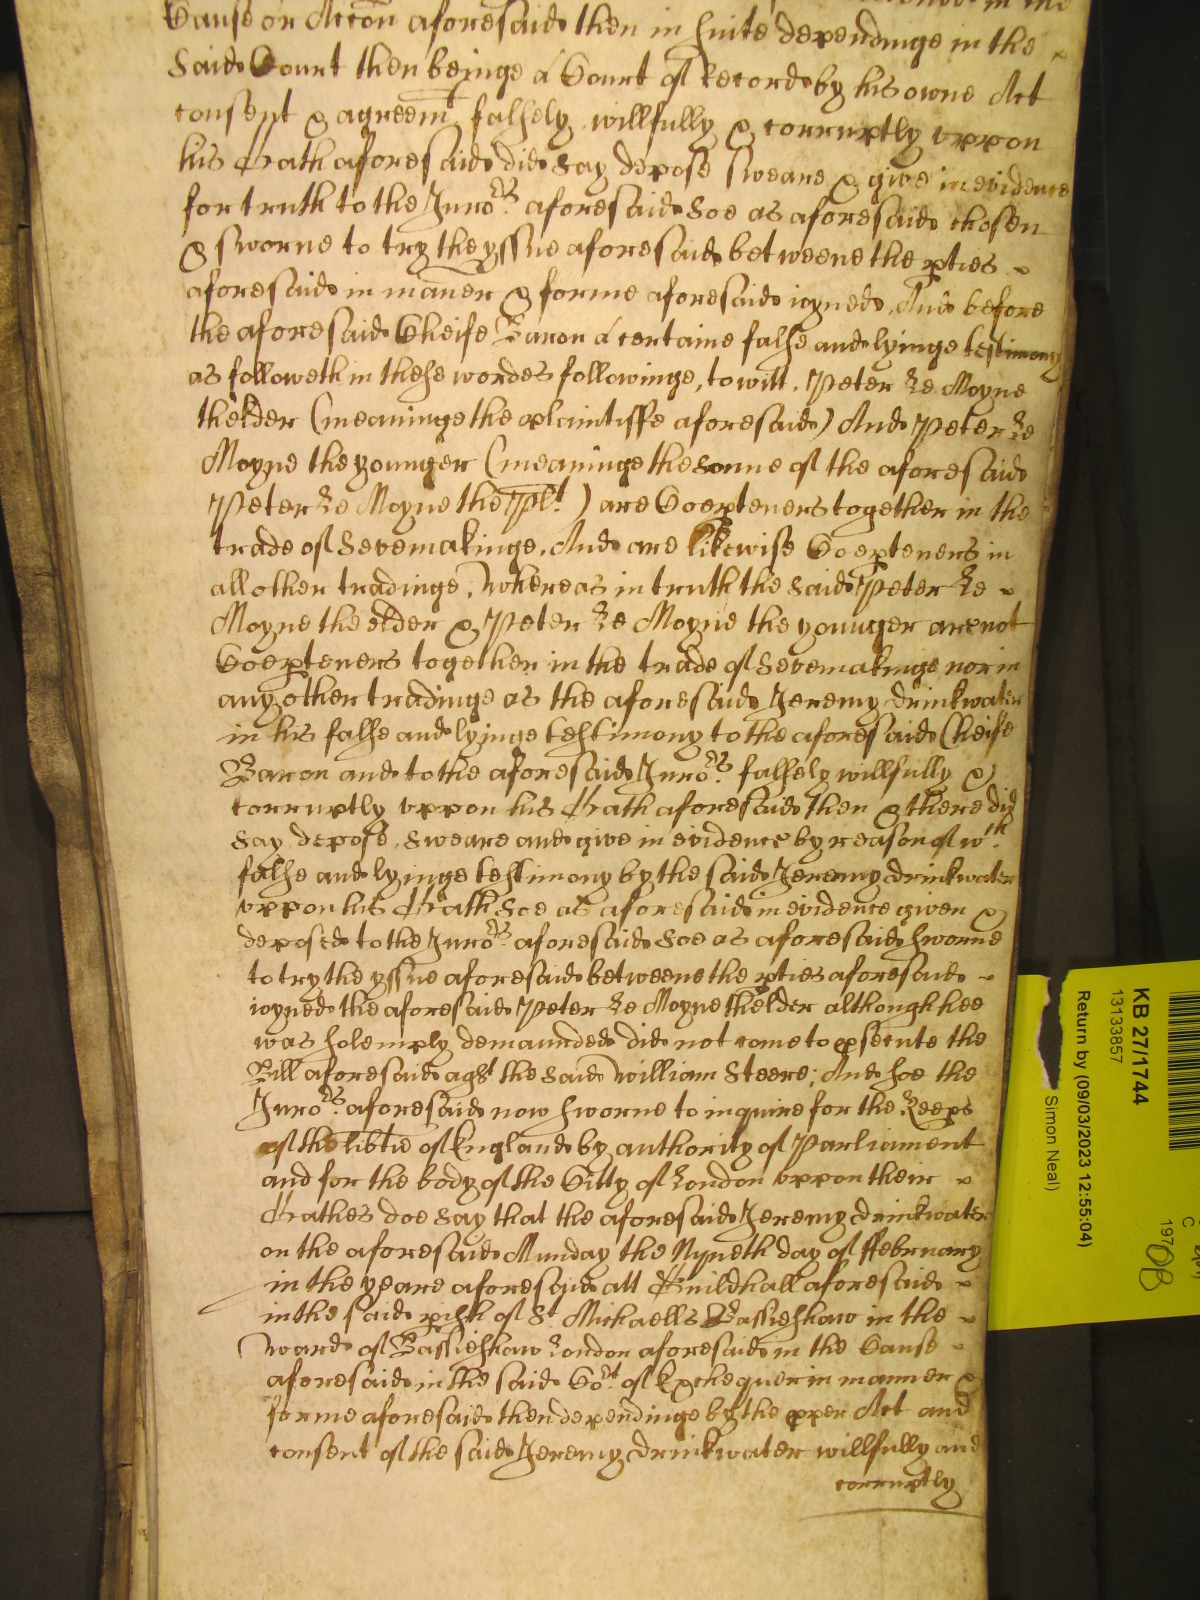 Cause or Accõn aforesaid then in suite dependinge in the
said Court then beinge a Court of Record by his owne Act
consent & agreemt falsely willfully & corruptly uppon
his Oath aforesaid did say depose sweare & give in evidence
for truth to the Juro.rs aforesaid soe as aforesaid chosen
& sworne to try the yssue aforesaid betweene the pties
aforesaid in maner & forme aforesaid ioyned, And before
the aforesaid Cheife Baron a certaine false and lyinge testimony
as followeth in these wordes followinge, to witt, Peter Le Moyne
thelder (meaninge the plaintiffe aforesaid) And Peter Le
Moyne the younger (meaninge the sonne of the aforesaid
Peter Le Moyne the Plt.) are Coepteners together in the
trade of Sevemakinge, And are likewise Coepteners in
all other tradinge, Whereas in truth the said Peter Le
Moyne the elder & Peter Le Moyne the younger are not
Coepteners together in the trade of Sevemakinge nor in
any other tradinge as the aforesaid Jeremy Drinkwater
in his false and lyinge testimony to the aforesaid Cheife
Baron and to the aforesaid Juro.rs falsely willfully &
corruptly uppon his Oath aforesaid then & there did
say depose, sweare and give in evidence by reason of wth.
false and lyinge testimony by the said Jeremy Drinkwater
uppon his Oath soe as aforesaid in evidence given &
deposed to the Juro.rs aforesaid soe as aforesaid sworne
to try the yssue aforesaid betweene the pties aforesaid
ioyned the aforesaid Peter Le Moyne thelder although hee
was solemply demaunded did not come to psecute the
Bill aforesaid agst the said William Steere; And soe the
Juro.rs aforesaid now sworne to inquire for the Keeps
of the libtie of England by authority of Parliament
and for the body of the Citty of London uppon their
Oathes doe say that the aforesaid Jeremy Drinkwater
on the aforesaid Munday the Nyneth day of ffebruary
in the yeare aforesaid att Guildhall aforesaid
in the said pish of St Michaells Bassieshaw in the
Ward of Bassieshaw London aforesaid in the Cause
aforesaid in the said Cort. of Exchequer in manner &
forme aforesaid then dependinge by the pper Act and
consent of the said Jeremy Drinkwater willfully and
corruptly
KB 27/1744
13133857
Return by (09/03/2023 12:55:04)
Simon Neal)